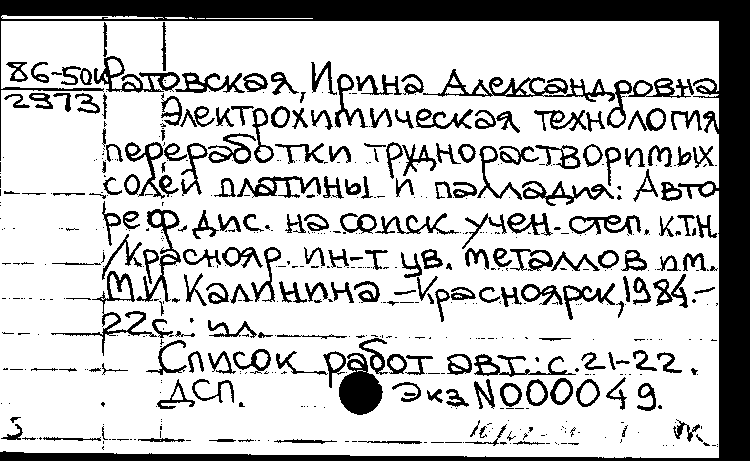 86-50к Ратовская, Ирина Александровна
2973 Электрохимическая технология
переработки труднорастворимых
солей платины и палладия: Авто-
реф. дис. на соиск учен. степ. к.т.н.
/Краснояр. ин-т цв. металлов им.
М.И. Калинина.-Красноярск, 1984.-
22с.: ил.
Список работ авт.: с.21-22.
ДСП. Экз N000049.
5